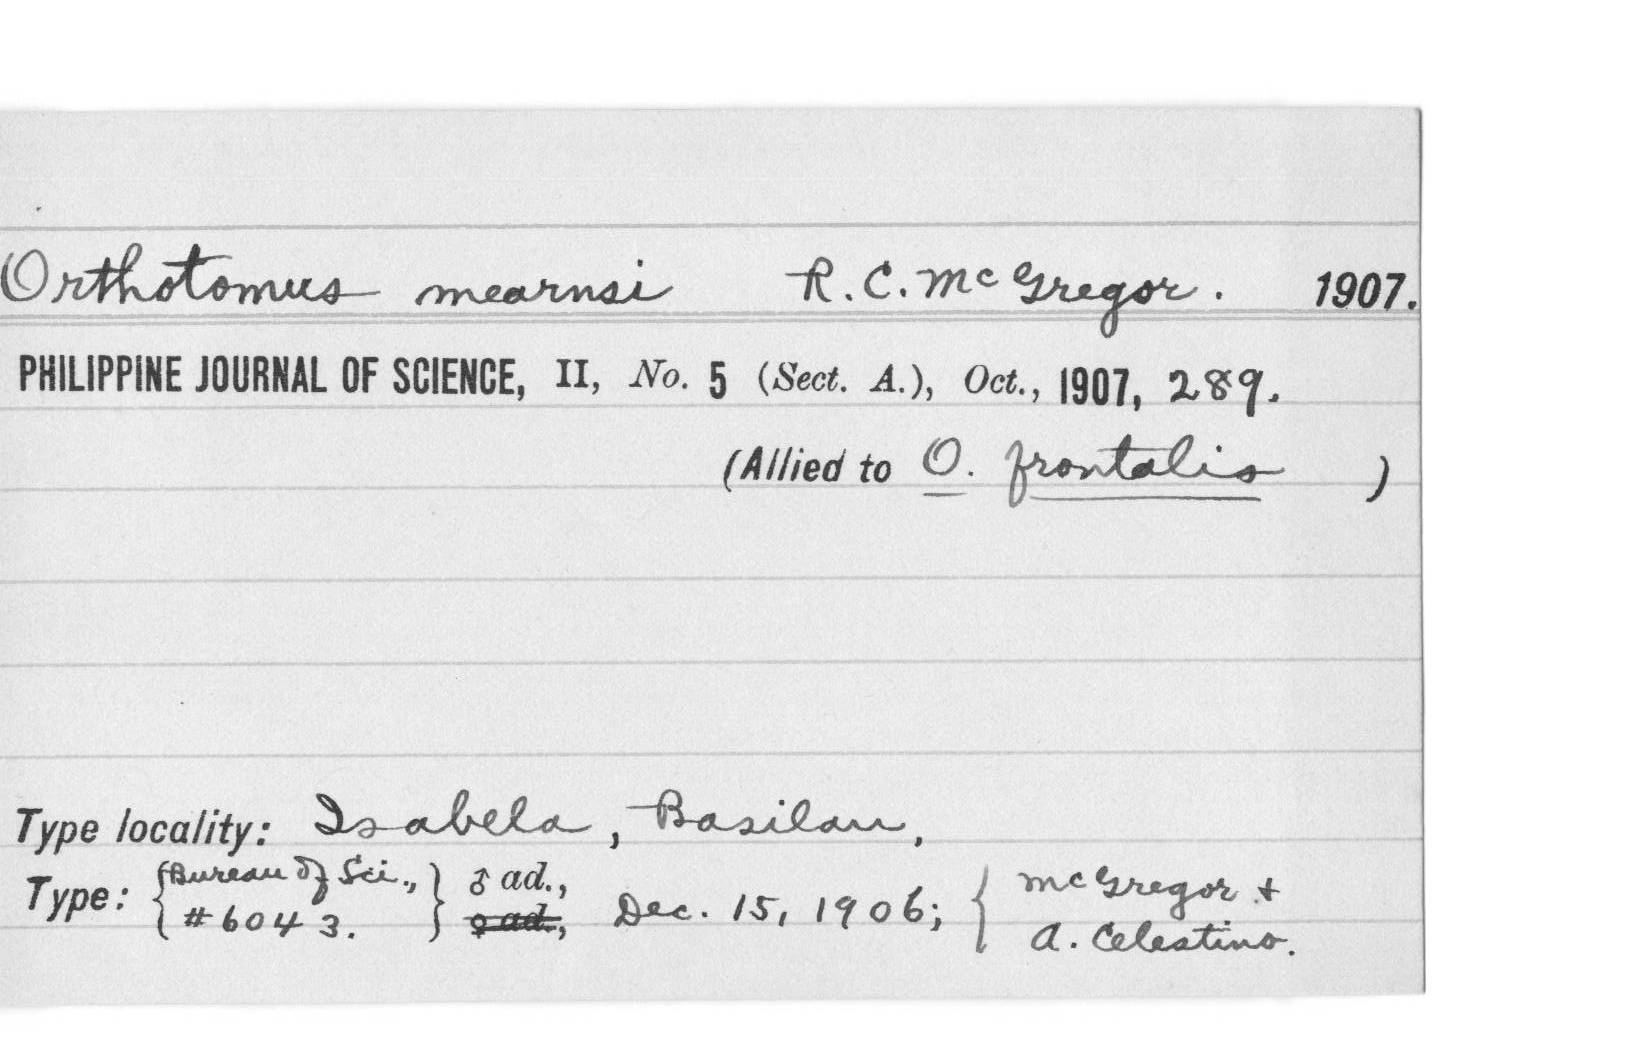 Orthotomus mearnsi R.C. McGregor. 1907.
PHILIPPINE JOURNAL OF SCIENCE, II, No. 5 (Sect. A.), Oct., 1907, 289.
(Allied to O. frontalis )
Type locality: Isabela, Basilan,
Type: {Bureau of Sci., #6043.} ♂ ad., ♀ ad., Dec. 15, 1906; { McGregor & A. Celestino.